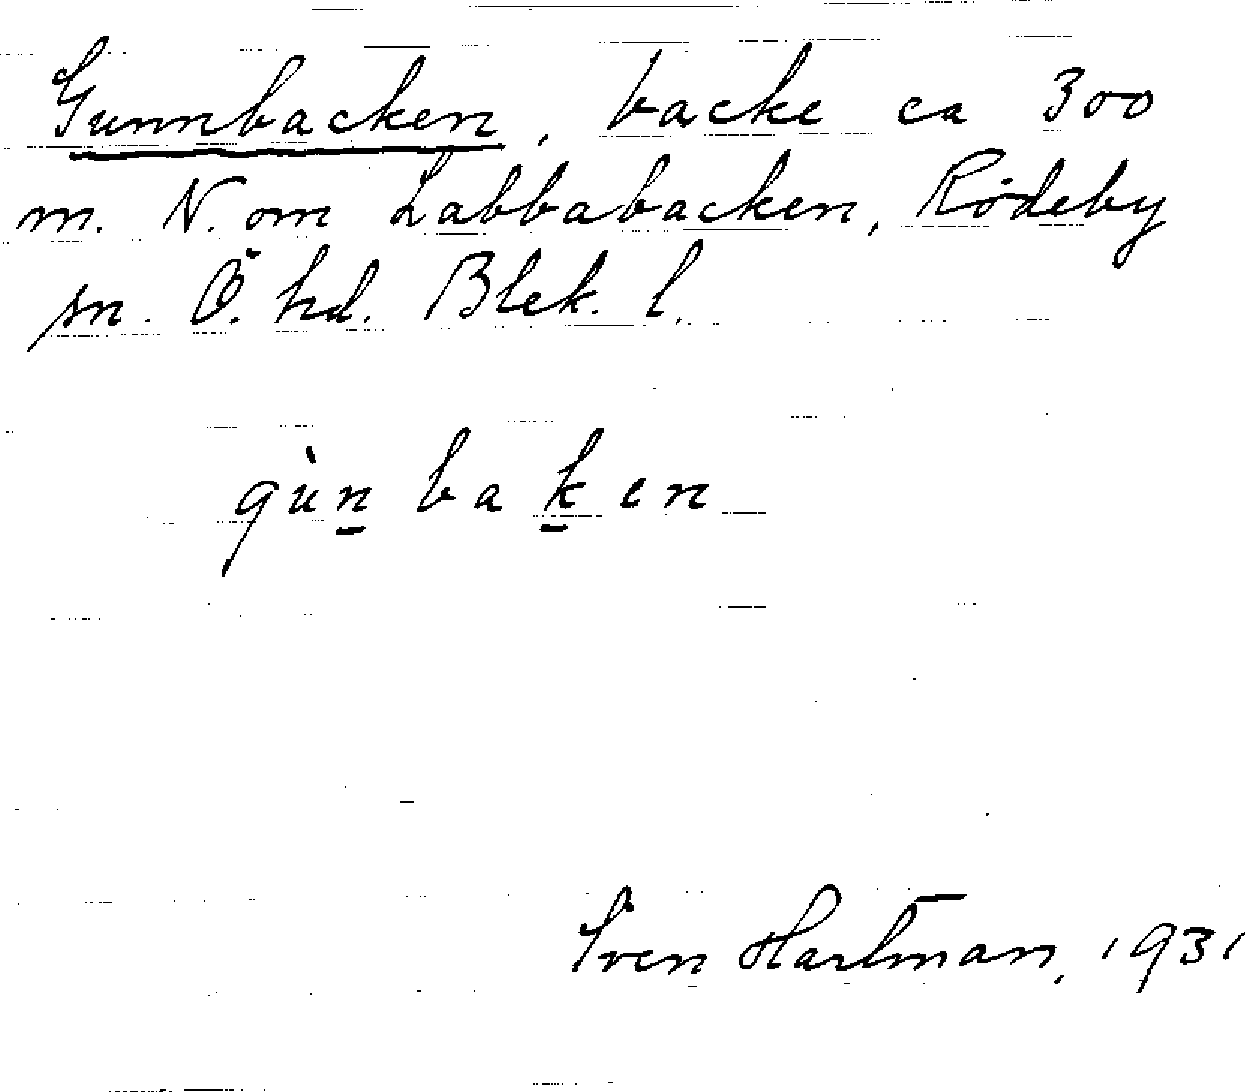 Gunnbacken, backe ca 300
m. N. om Labbabacken, Rödeby
sn. Ö. hd. Blek. l.
gùn̲ bak̲en
Sven Hartman, 1931